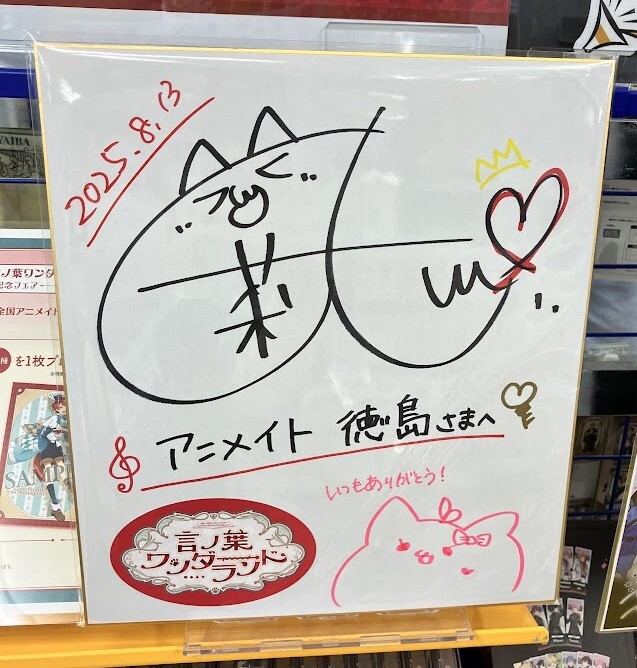 2025.8.13
莉
アニメイト 徳島さまへ
いつもありがとう！
言ノ葉
ワンダー
ランド
YAIBA
言ノ葉ワンダ
記念フェア
全国アニメイト
を1枚プ
SAMP